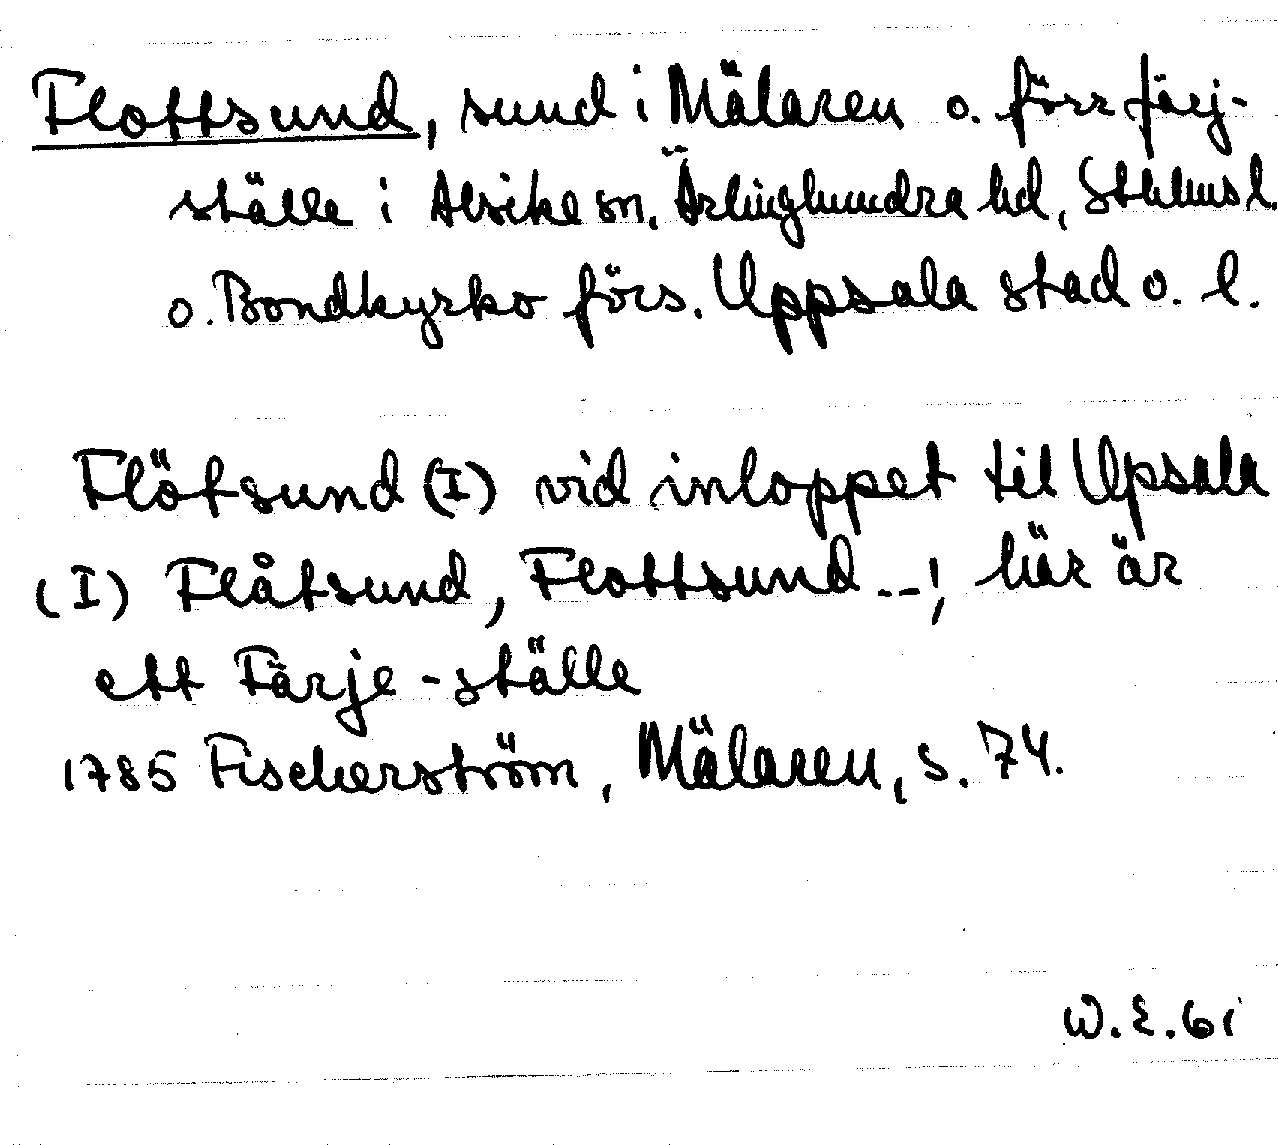 Flottsund, sund i Mälaren o. förr färj-
ställe i Alsike sn. Ärlinghundra hd, Sthlms l.
o. Bondkyrko förs. Uppsala stad o. l.
Flötsund (I) vid inloppet til Upsala
(I) Flåtsund, Flottsund --, här är
ett Färje-ställe
1785 Fischerström, Mälaren, s. 74.
W. E. 61